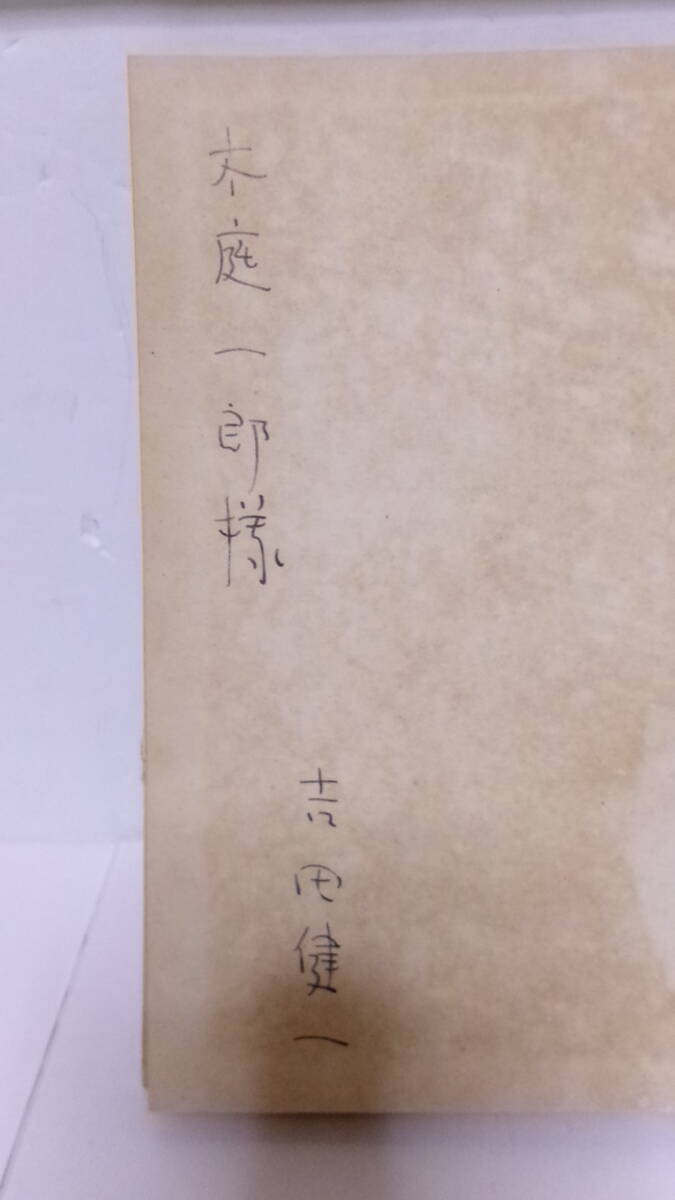 木庭一郎様
吉田健一